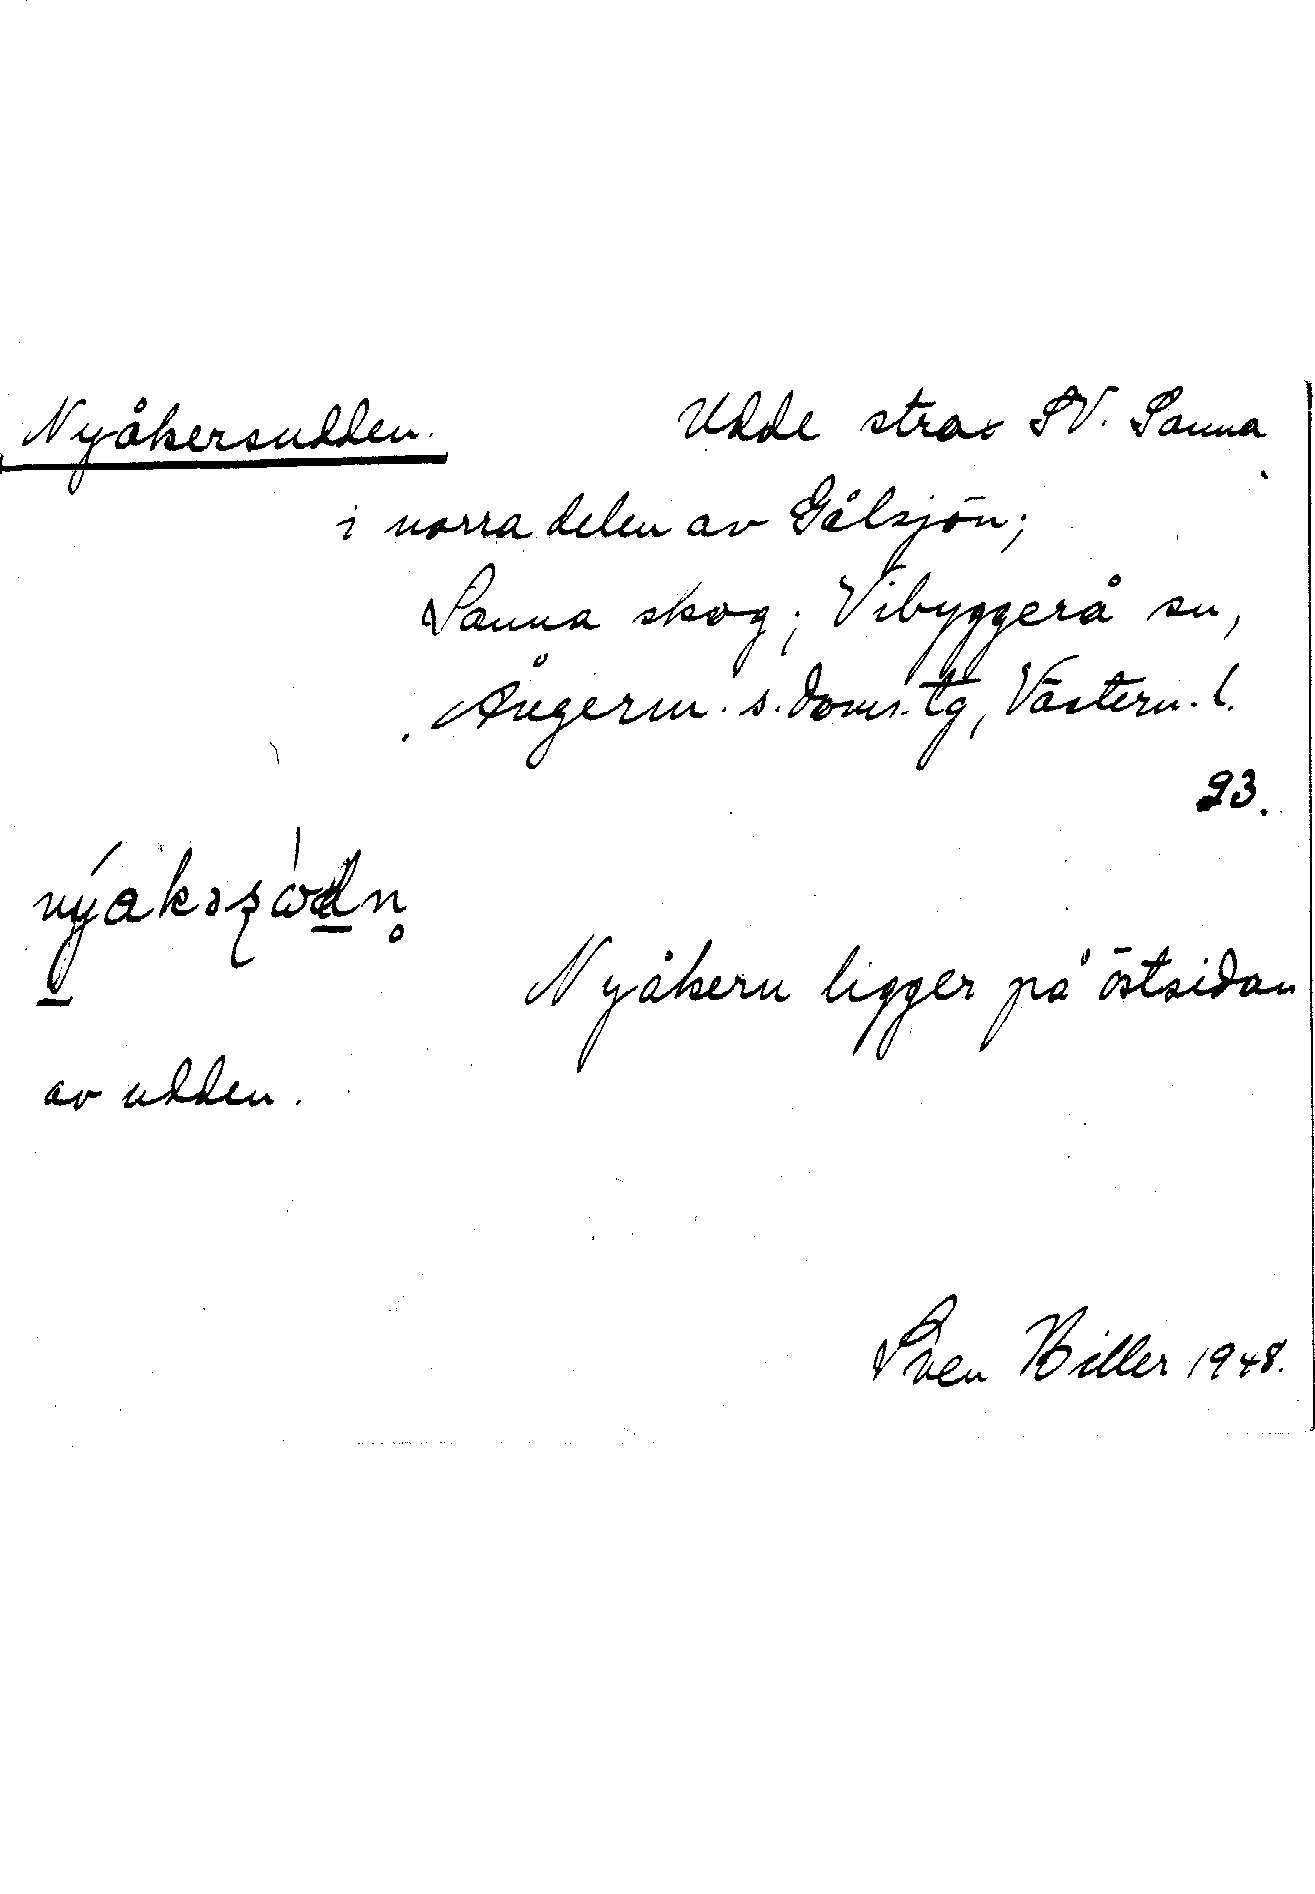 Nyåkersudden. Udde strax SV. Sanna
i norra delen av Gålsjön;
Sanna skog; Vibyggerå sn,
Ångerm. s. doms. tg, Västern. l.
23.
Nyåkern ligger på östsidan
av udden.
Sven Hiller 1948.